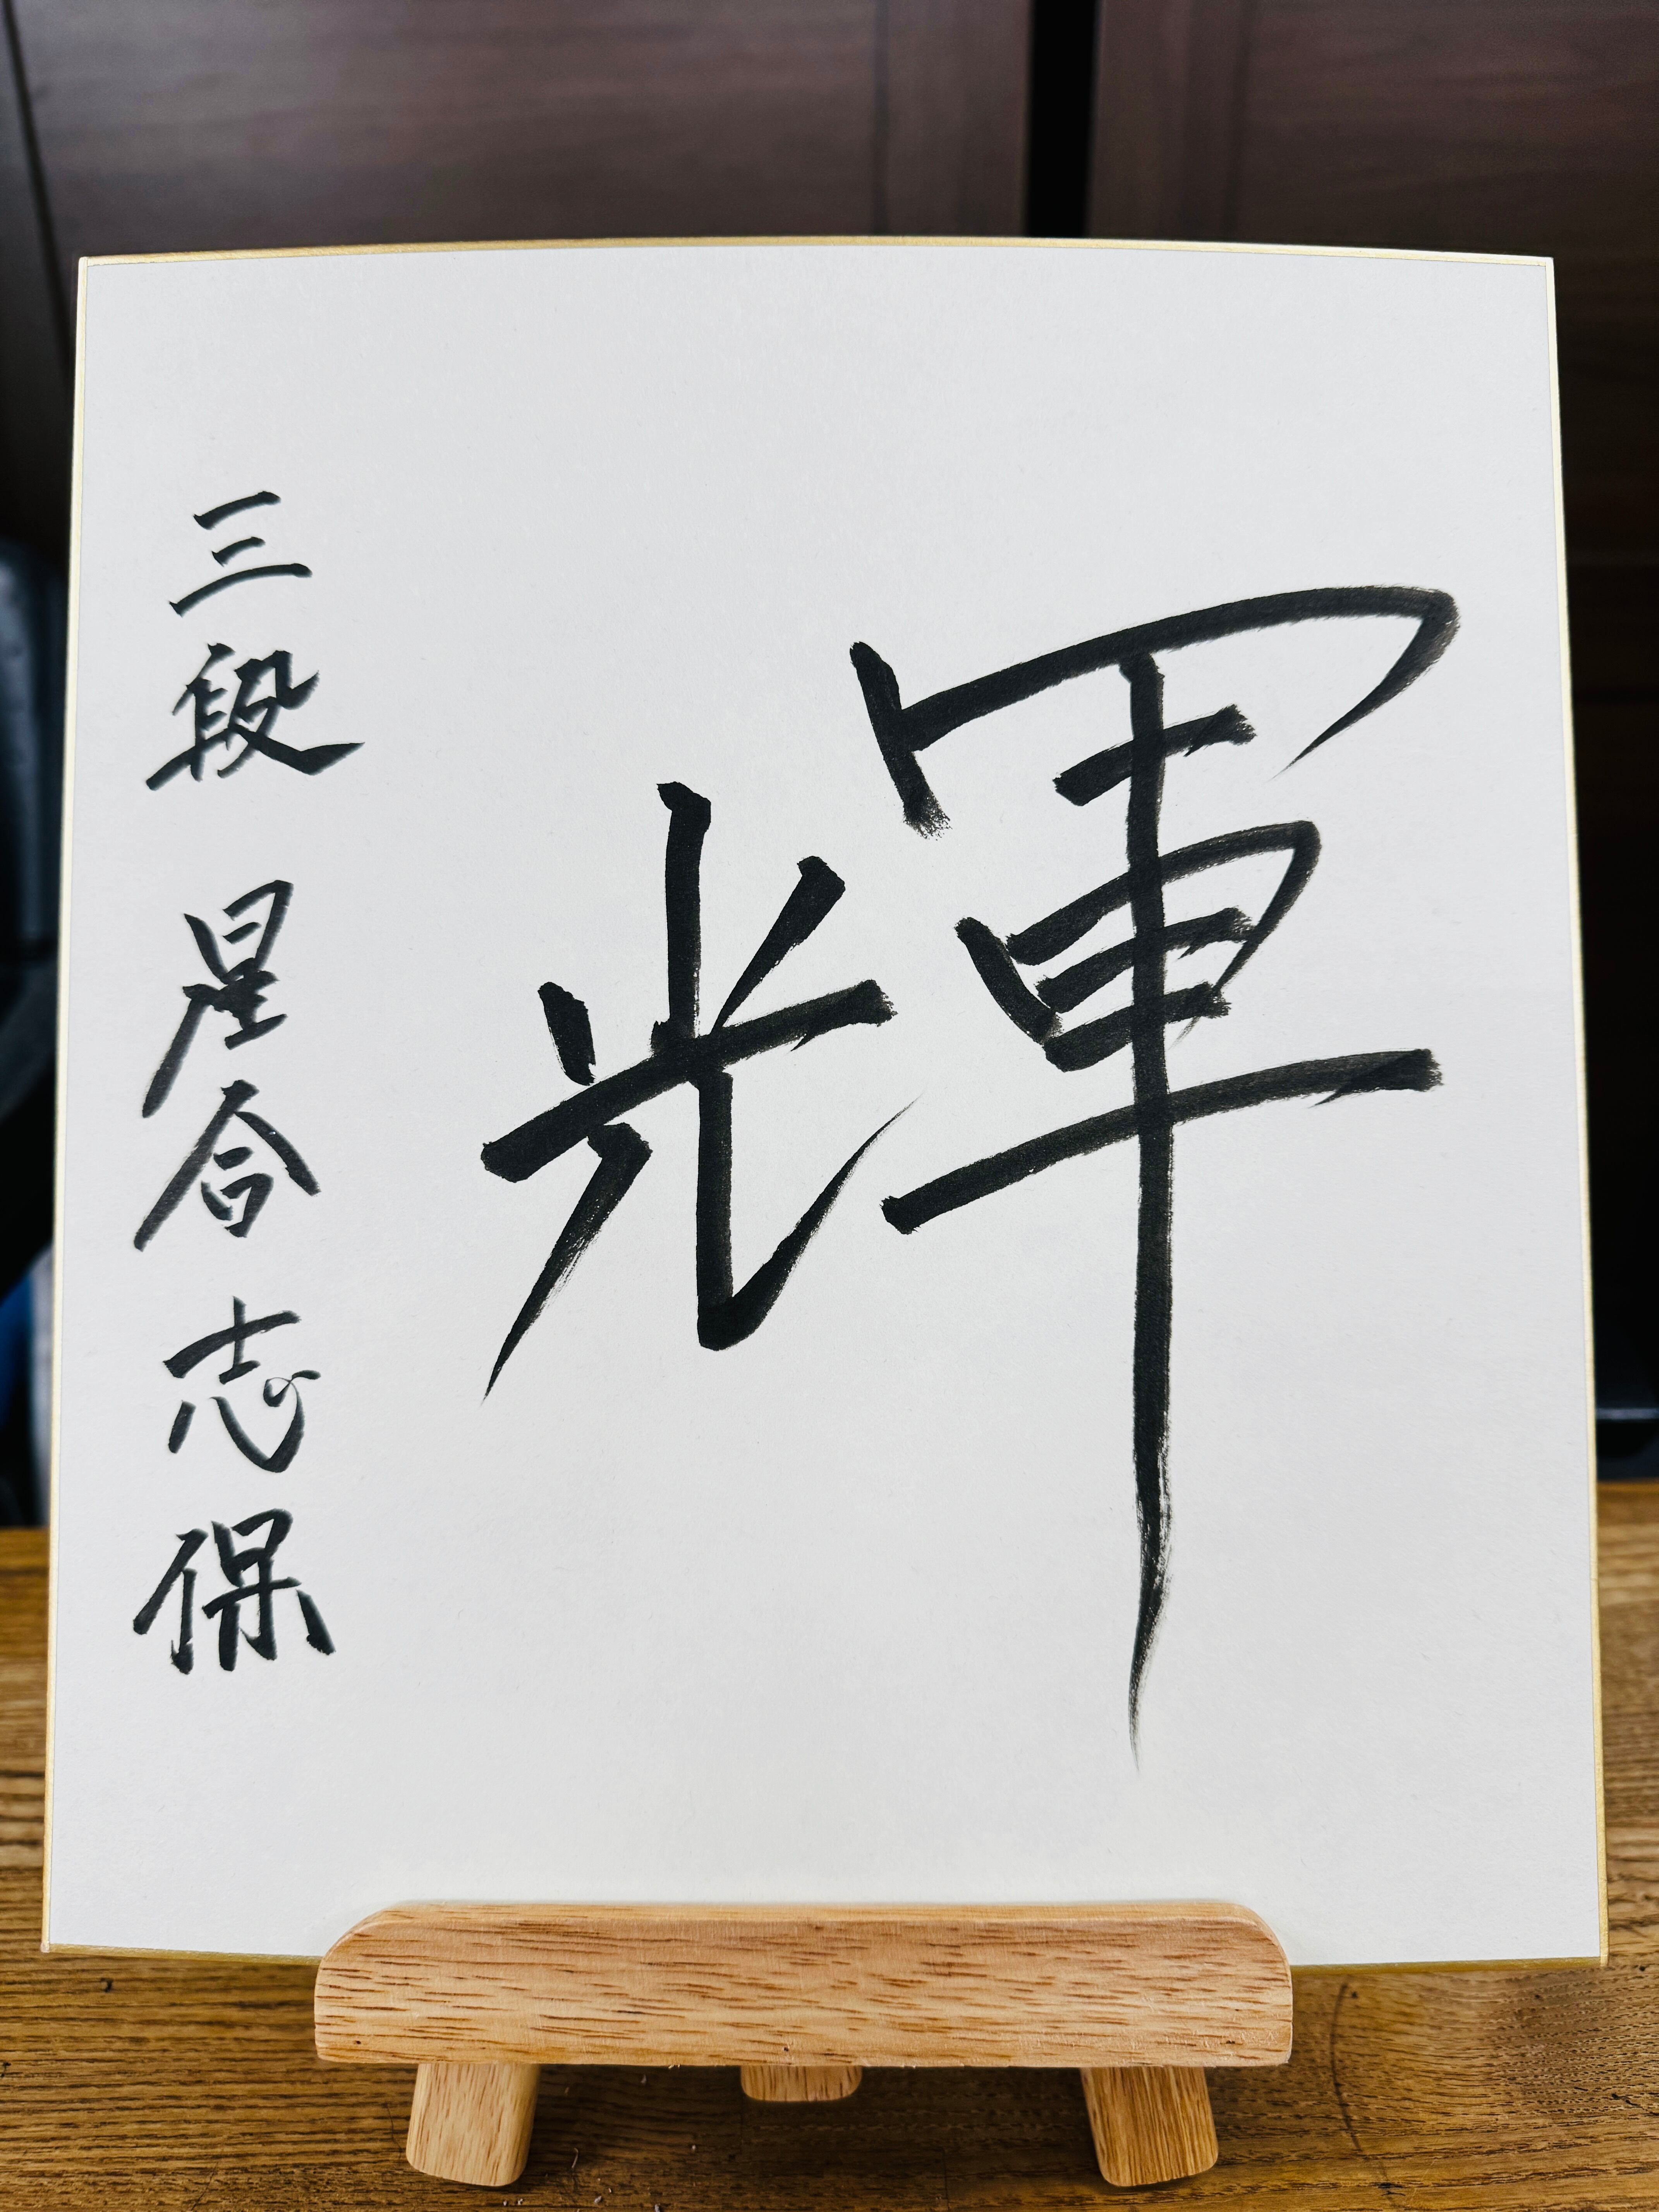 輝
三段 星合志保